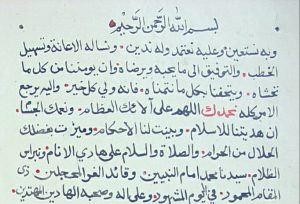 بسم الله الرحمن الرحيم
وبه نستعين وعليه نعتمد وله ندين ونسأله الاعانة وتسهيل
الخطب والتوفيق الى ما يحبه ويرضاه وان يؤمننا من كل ما
نخشاه ويتحفنا بكل ما نتمناه فانه ولي كل خير واليه يرجع
الامر كله نحمدك اللهم على آلائك العظام ونعمك الجسام
ان هديتنا للاسلام وبينت لنا الاحكام وميزت بفضلك
الحلال من الحرام والصلاة والسلام على هادي الانام ونبراس
الظلام سيدنا محمد امام النبيين وقائد الغر المحجلين ذي
المقام المحمود في اليوم المشهود وعلى اله وصحبه الهادين المهتدين